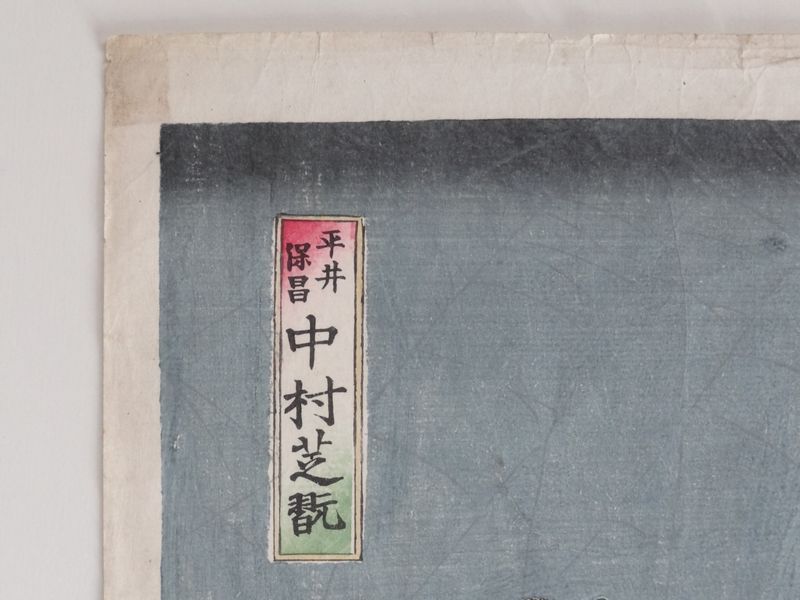 平井
保昌
中村芝翫